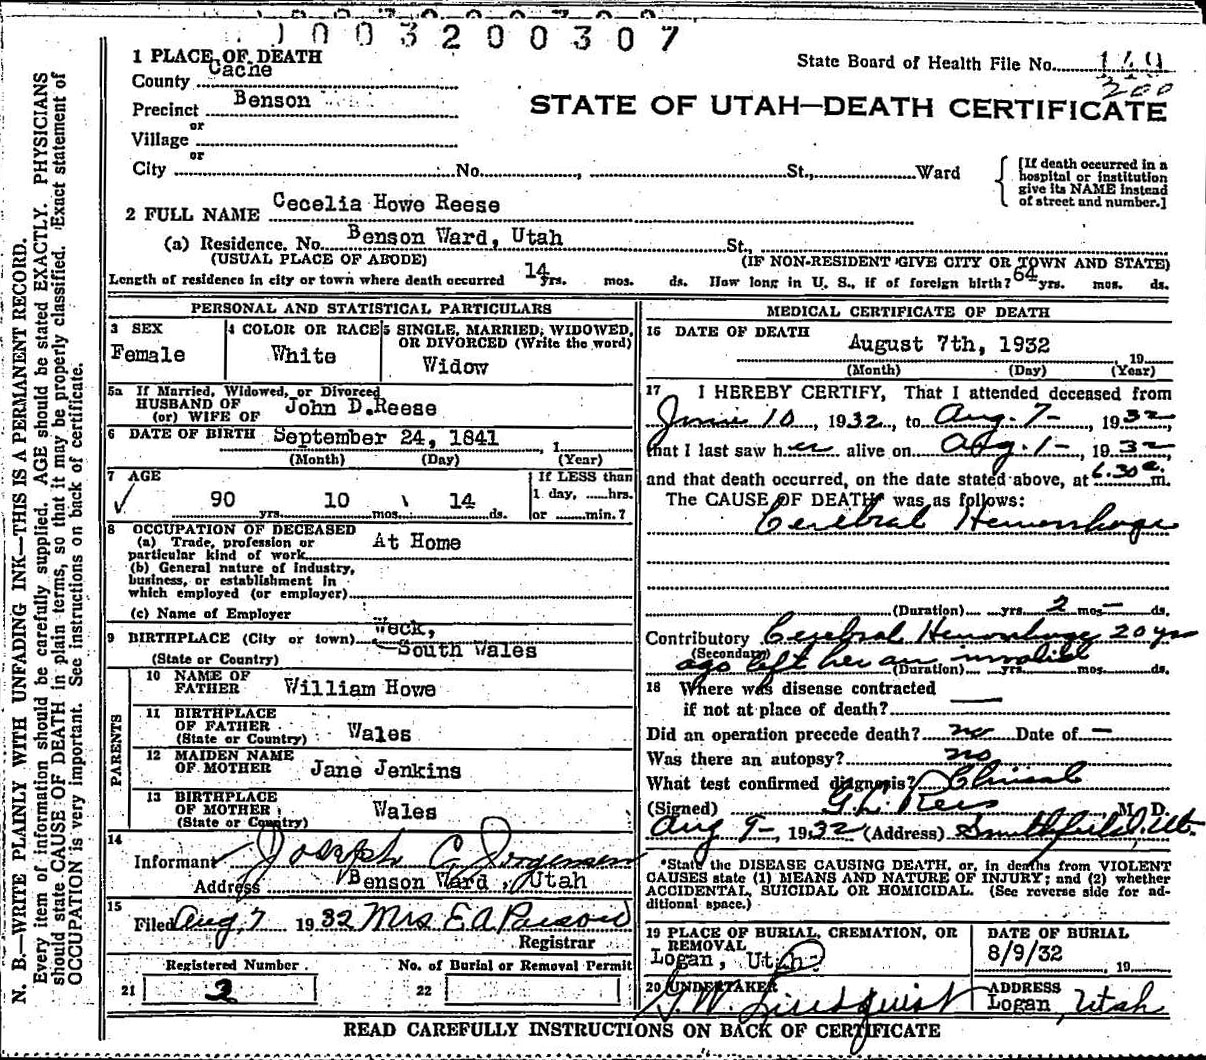 1003200307
1 PLACE OF DEATH
County Cache
State Board of Health File No.
200
Precinct Benson
STATE OF UTAH—DEATH CERTIFICATE
or
Village
or
City No. , St., Ward
[If death occurred in a hospital or institution give its NAME instead of street and number.]
2 FULL NAME Cecelia Howe Reese
(a) Residence. No. Benson Ward, Utah St.,
(USUAL PLACE OF ABODE) (IF NON-RESIDENT GIVE CITY OR TOWN AND STATE)
Length of residence in city or town where death occurred 14 yrs. mos. ds. How long in U. S., if of foreign birth? 64 yrs. mos. ds.
PERSONAL AND STATISTICAL PARTICULARS
3 SEX
Female
4 COLOR OR RACE
White
5 SINGLE, MARRIED, WIDOWED, OR DIVORCED (Write the word)
Widow
5a If Married, Widowed, or Divorced
HUSBAND OF
(or) WIFE OF John D.Reese
6 DATE OF BIRTH September 24, 1841 , 1
(Month) (Day) (Year)
7 AGE
If LESS than
1 day, hrs.
or min.?
90 yrs. 10 mos. 14 ds.
8 OCCUPATION OF DECEASED
(a) Trade, profession or
particular kind of work At Home
(b) General nature of industry,
business, or establishment in
which employed (or employer)
(c) Name of Employer
9 BIRTHPLACE (City or town) Weck,
South Wales
(State or Country)
PARENTS
10 NAME OF
FATHER William Howe
11 BIRTHPLACE
OF FATHER
(State or Country) Wales
12 MAIDEN NAME
OF MOTHER Jane Jenkins
13 BIRTHPLACE
OF MOTHER
(State or Country) Wales
14
Informant Joseph C. Jorgensen
Address Benson Ward, Utah
15
Filed Aug 7 1932 Mrs E A Parsons
Registrar
Registered Number No. of Burial or Removal Permit
21 3 22
MEDICAL CERTIFICATE OF DEATH
16 DATE OF DEATH
August 7th, 1932 , 19
(Month) (Day) (Year)
17 I HEREBY CERTIFY, That I attended deceased from
June 10, 1932, to Aug. 7-, 1932,
that I last saw her alive on Aug. 1-, 1932,
and that death occurred, on the date stated above, at 6.30 a. m.
The CAUSE OF DEATH* was as follows:
Cerebral Hemorrhage
(Duration) yrs. 2 mos. — ds.
Contributory Cerebral Hemorrhage 20 yrs
(Secondary) ago left her an invalid
(Duration) yrs. mos. ds.
18 Where was disease contracted
if not at place of death? —
Did an operation precede death? no Date of —
Was there an autopsy? no
What test confirmed diagnosis? Clinical
(Signed) G.L. Rees M. D.
Aug 9-, 1932 (Address) Smithfield, Ut.
*State the DISEASE CAUSING DEATH, or, in deaths from VIOLENT
CAUSES state (1) MEANS AND NATURE OF INJURY; and (2) whether
ACCIDENTAL, SUICIDAL OR HOMICIDAL. (See reverse side for ad-
ditional space.)
19 PLACE OF BURIAL, CREMATION, OR
REMOVAL
Logan, Utah
DATE OF BURIAL
8/9/32 , 19
20 UNDERTAKER
G.W. Lindquist
ADDRESS
Logan, Utah
READ CAREFULLY INSTRUCTIONS ON BACK OF CERTIFICATE
N. B.—WRITE PLAINLY WITH UNFADING INK—THIS IS A PERMANENT RECORD.
Every item of information should be carefully supplied. AGE should be stated EXACTLY. PHYSICIANS
should state CAUSE OF DEATH in plain terms, so that it may be properly classified. Exact statement of
OCCUPATION is very important. See instructions on back of certificate.